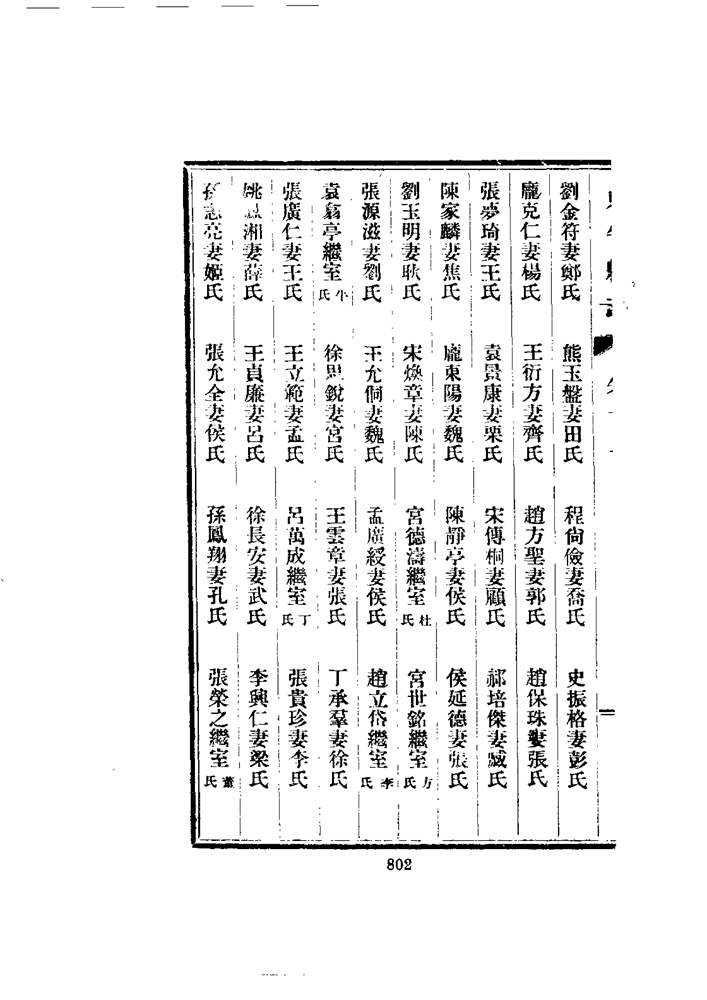 劉金符妻鄭氏 熊玉盤妻田氏 程尙儉妻喬氏 史振格妻彭氏
龐克仁妻楊氏 王衍方妻齊氏 趙方聖妻郭氏 趙保珠妻張氏
張夢琦妻王氏 袁景康妻栗氏 宋傳桐妻顧氏 祁培傑妻臧氏
陳家麟妻焦氏 龐東陽妻魏氏 陳靜亭妻侯氏 侯延德妻張氏
劉玉明妻耿氏 宋煥章妻陳氏 宮德濤繼室杜氏 宮世銘繼室方氏
張源滋妻劉氏 王允侗妻魏氏 孟廣綬妻侯氏 趙立岱繼室李氏
袁翥亭繼室牛氏 徐思銳妻宮氏 王雲章妻張氏 丁承羣妻徐氏
張廣仁妻王氏 王立範妻孟氏 呂萬成繼室丁氏 張貴珍妻李氏
姚湘妻薛氏 王貞廉妻呂氏 徐長安妻武氏 李興仁妻梁氏
孫志亮妻姬氏 張允全妻侯氏 孫鳳翔妻孔氏 張榮之繼室董氏
802